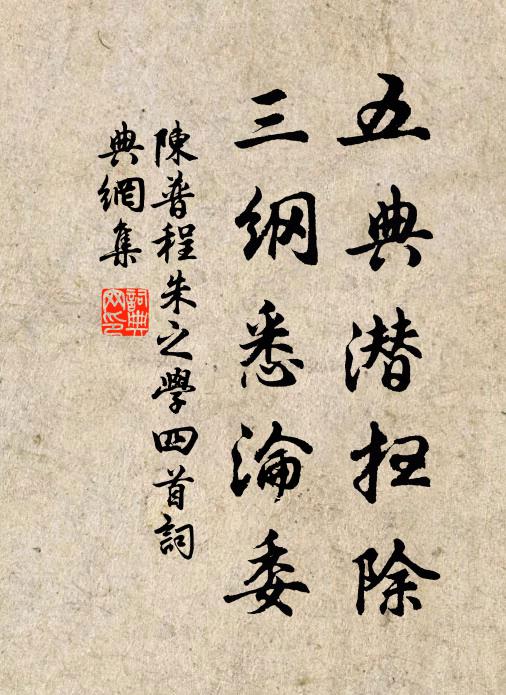 五典潜扫除
三纲悉淪委
陳普程朱之學四首詞
典網集
詞典
网印